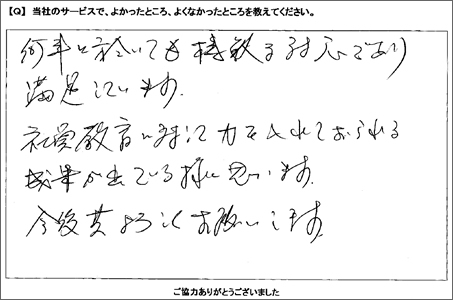 【Q】 当社のサービスで、よかったところ、よくなかったところを教えてください。
何事に於いても機敏な対応であり
満足しています。
社員教育に対して力を入れておられる
成果が出ている様に思います。
今後共よろしくお願いします。
ご協力ありがとうございました